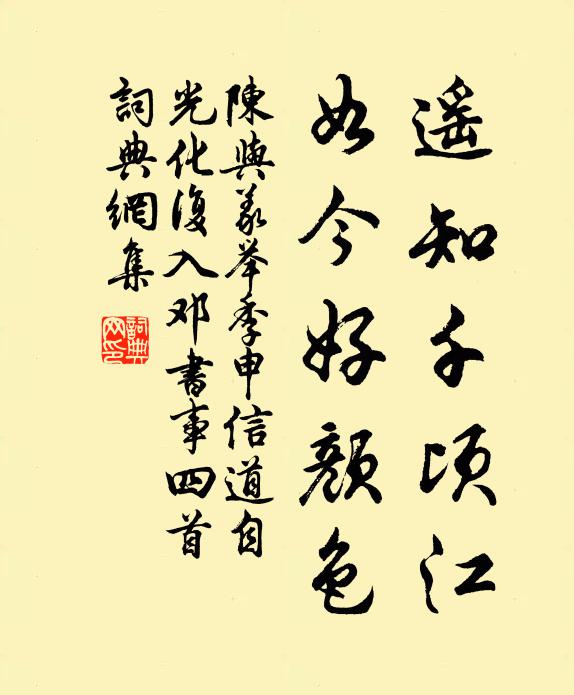 遥知千顷江
如今好颜色
陳與義举季申信道自
光化復入邓書事四首
詞典網集
詞典網印